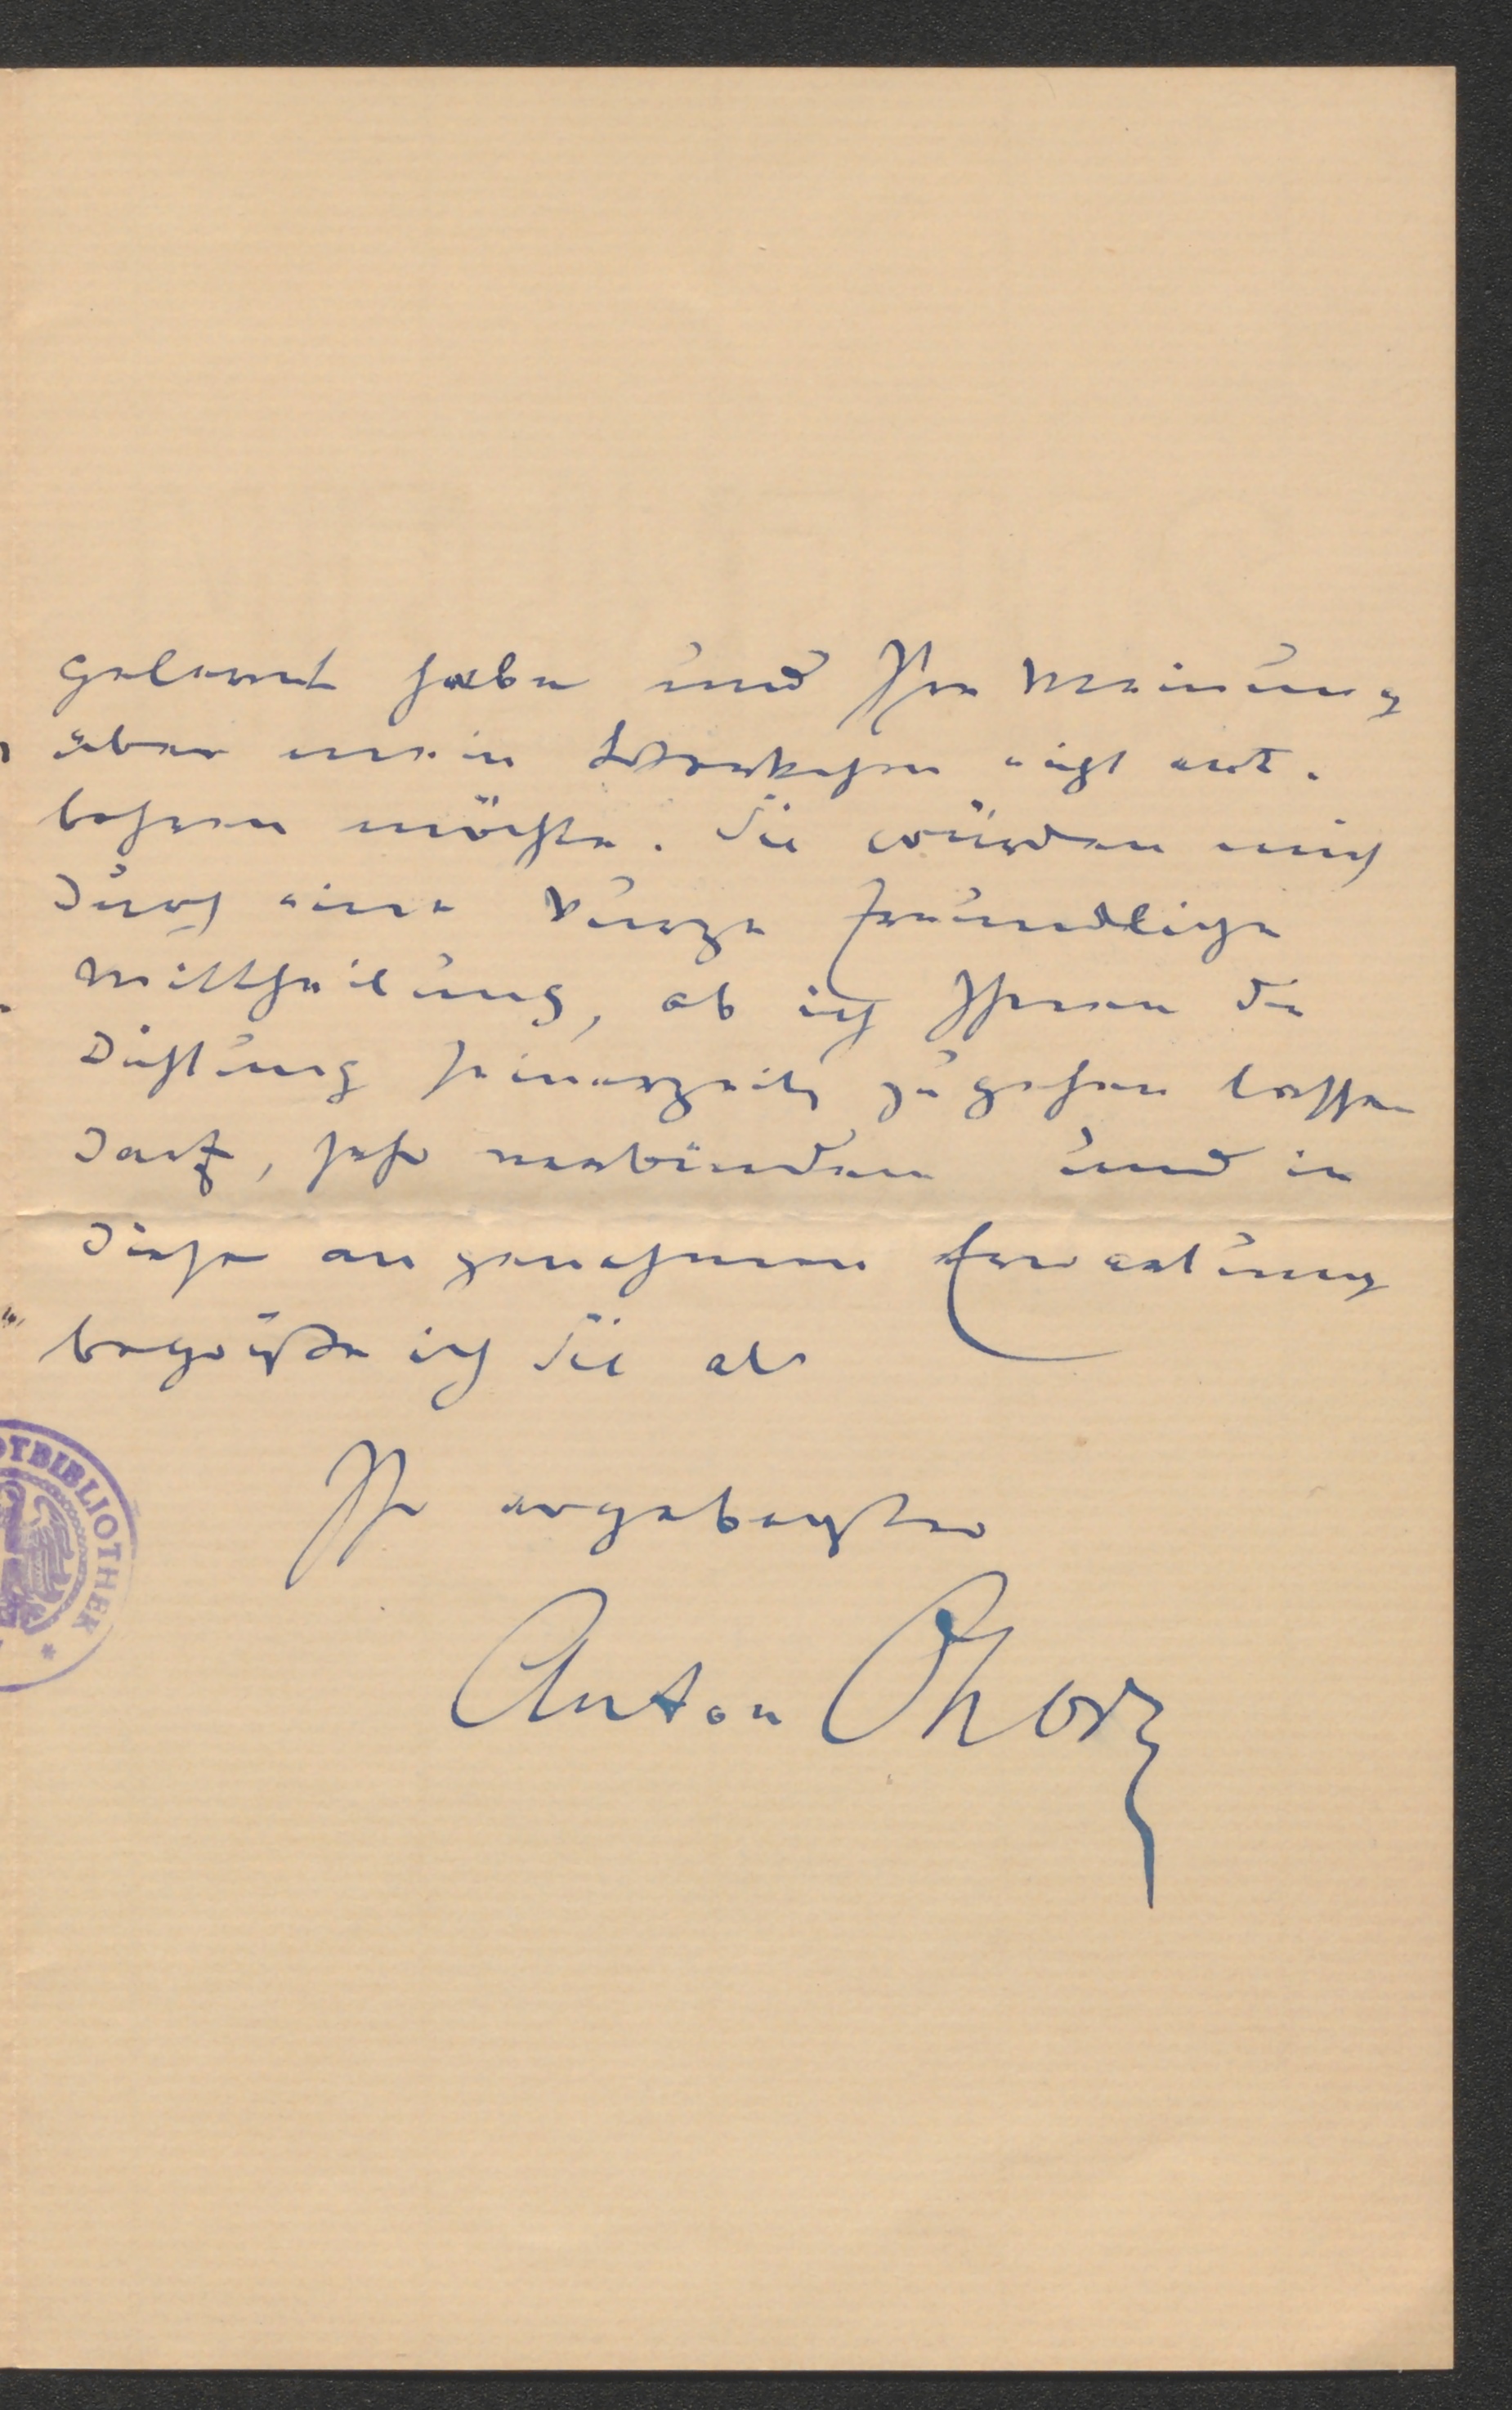 gelernt habe und Ihre Meinung
über mein nicht ent-
behren möchte. Sie würden mich
durch eine kurze freundliche
Mittheilung, ob ich Ihnen die
Dichtung seinerzeit zugehen lassen
darf, sehr verbinden und in
dieser angenehmen Erwartung
begrüße ich Sie als
Ihr ergebenster
Anton Ohorn
OTBIBLIOTHEK